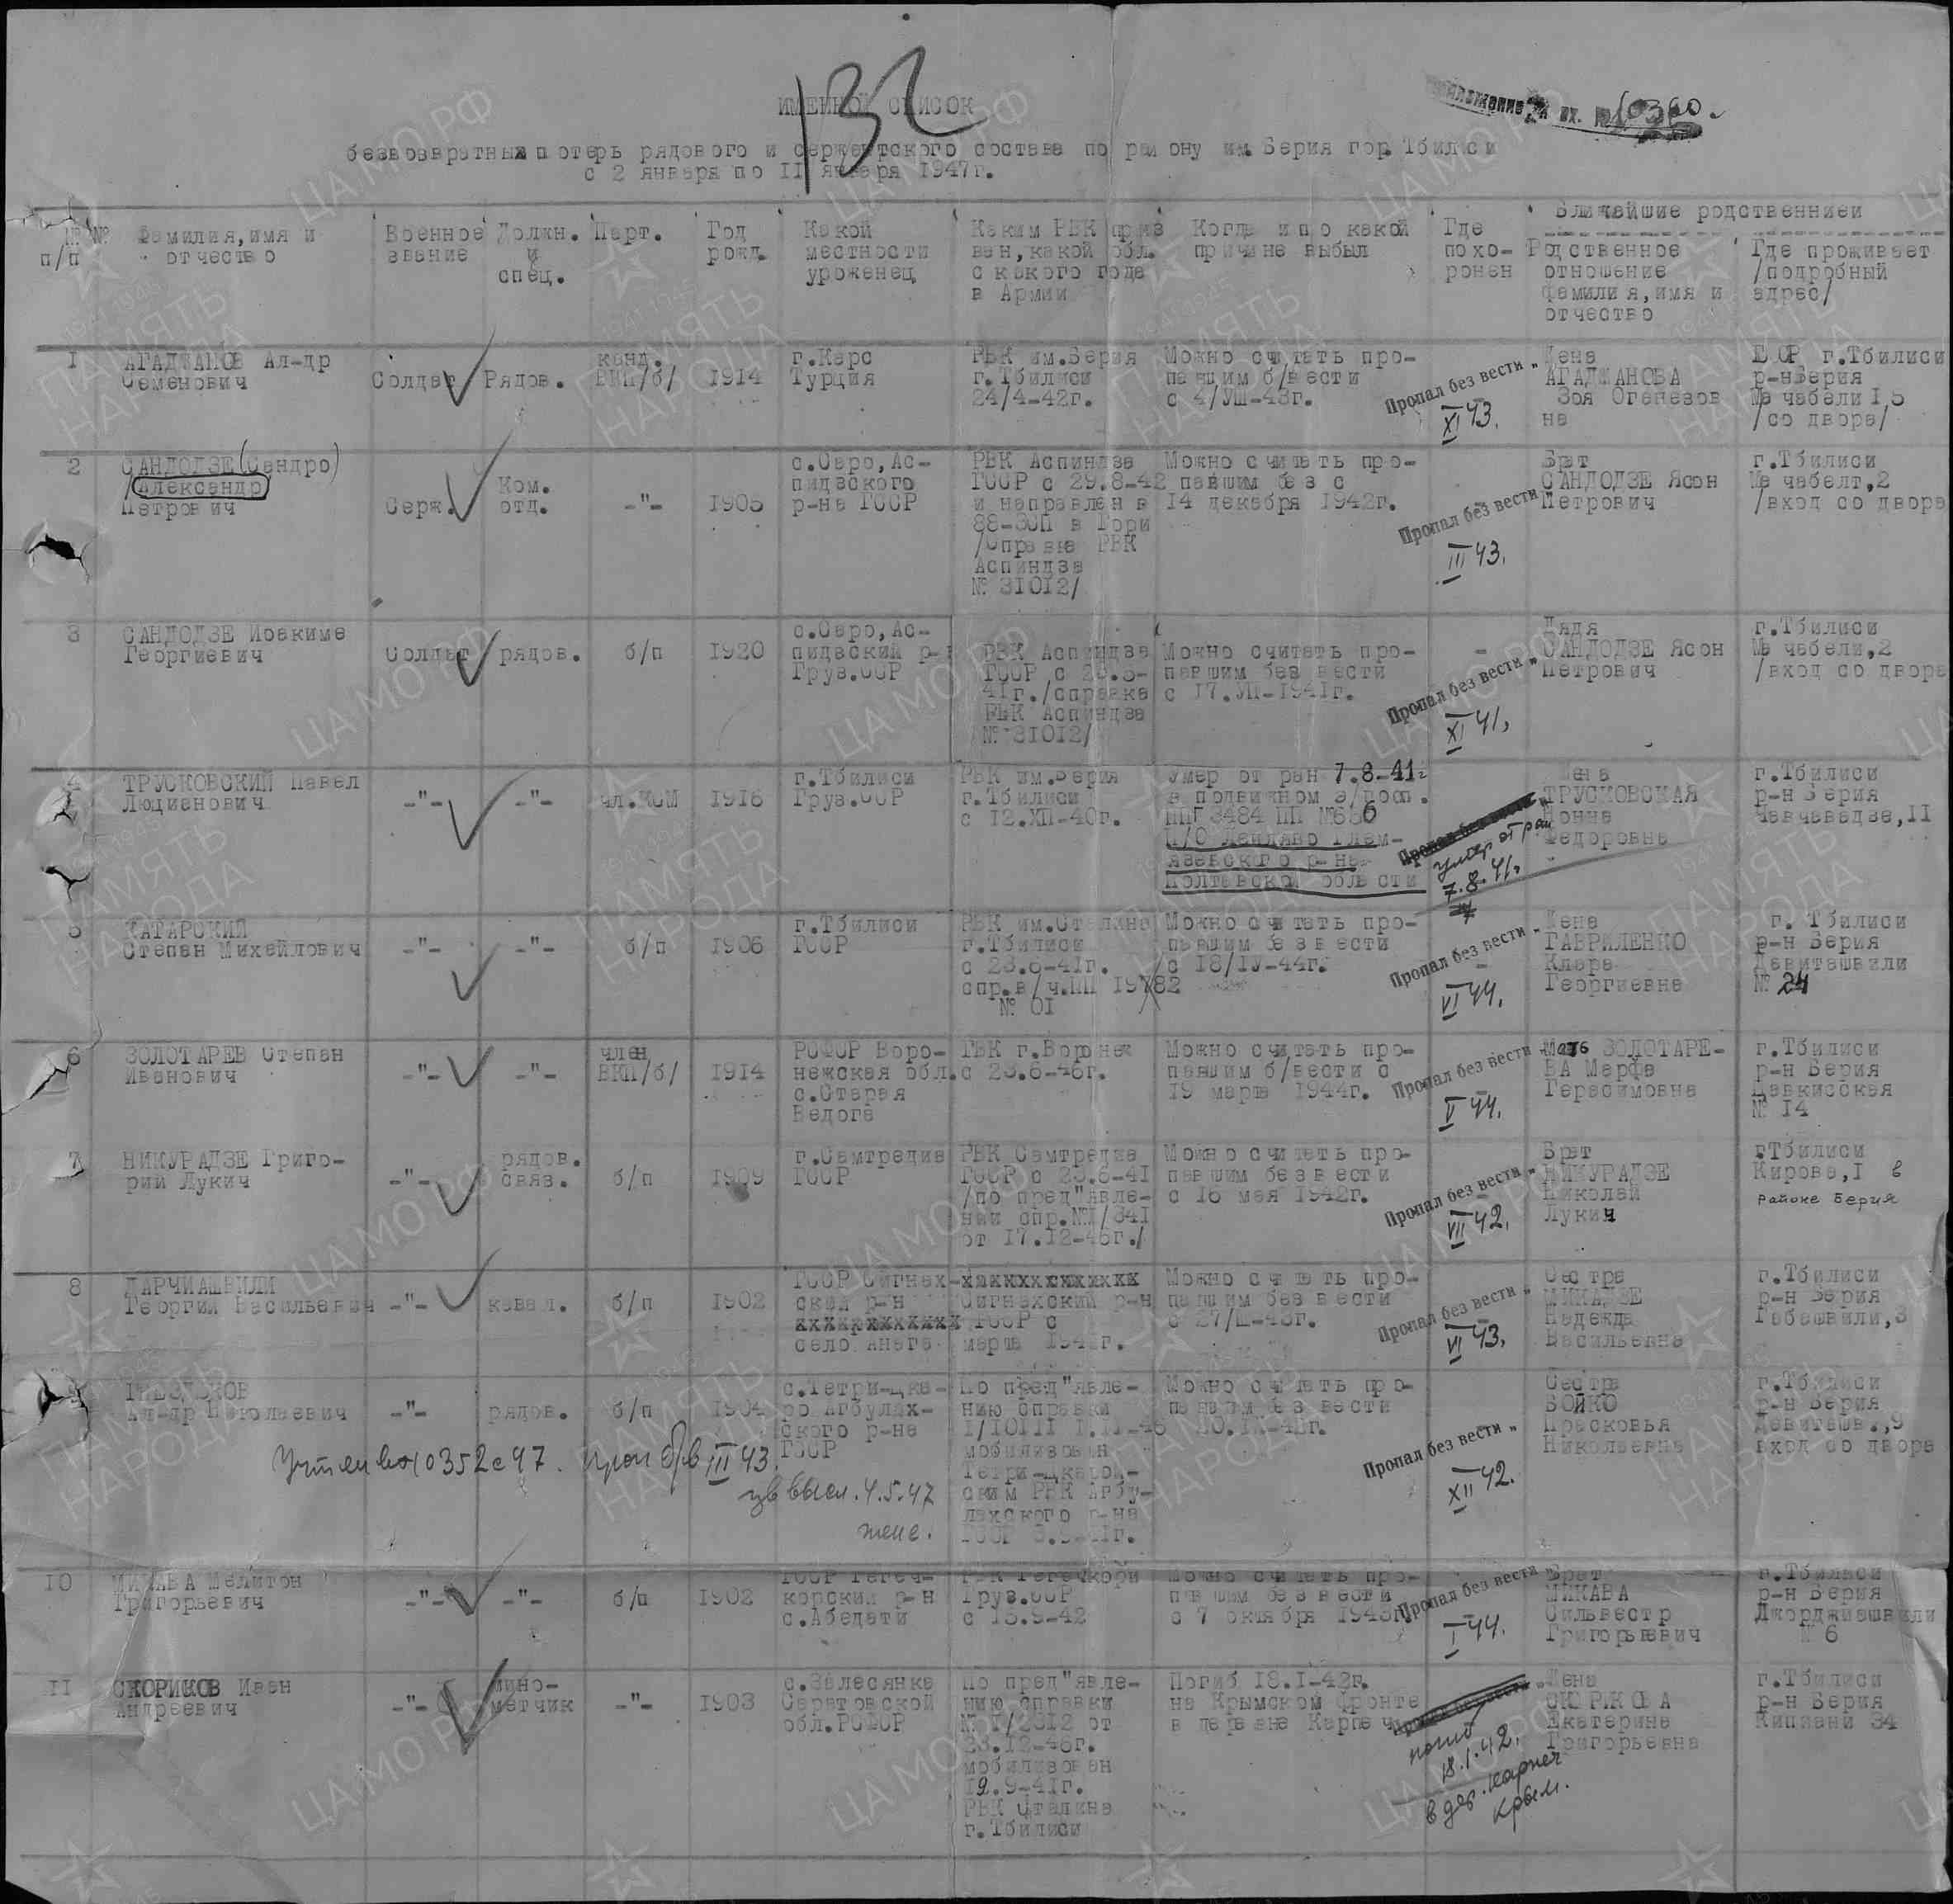 132
ИМЕННОЙ СПИСОК
вх. №10360.
безвозвратных потерь рядового и сержантского состава по району им. Берия гор. Тбилиси
с 2 января по II января 1947г.
№ №
п/п
Фамилия, имя и
отчество
Военное
звание
Должн.
и
спец.
Парт.
Год
рожд.
Какой
местности
уроженец
Каким РВК приз
ван, какой обл.
с какого года
в Армии
Когда и по какой
причине выбыл
Где
похо-
ронен
Ближайшие родственниеи
Родственное
отношение
фамилия, имя и
отчество
Где проживает
/подробный
адрес/
I
АГАДЖАНОВ Ал-др
Семенович
Солдат
Рядов.
канд.
ВКП/б/
1914
г.Карс
Турция
РВК им.Берия
г.Тбилиси
24/4-42г.
Можно считать про-
павшим б/вести
с 4/УШ-43г.
Пропал без вести
XI 43.
Жена
АГАДЖАНОВА
Зоя Оганезов
на
г.Тбилиси
р-н Берия
Мачабели 15
/со двора/
2
САНДОДЗЕ (Сандро)
/Александр
Петрович
Серж.
Ком.
отд.
-"-
1905
с.Саро, Ас-
пидзского
р-на ГССР
РВК Аспиндза
ГССР с 29.8-42
и направлен в
88-ЗСП в Гори
/Справка РВК
Аспиндза
№ 31012/
Можно считать про-
павшим без с
14 декабря 1942г.
Пропал без вести
III 43.
Брат
САНДОДЗЕ Ясон
Петрович
г.Тбилиси
Мачабелт,2
/вход со двора
3
САНДОДЗЕ Иоакиме
Георгиевич
Солдат
рядов.
б/п
1920
с.Саро, Ас-
пидзский р-н
Груз.ССР
РВК Аспиндза
41г./справка
РВК Аспиндза
№ 31012/
Можно считать про-
павшим без вести
с 17.УП-1941г.
Пропал без вести
XI 41,
Дядя
САНДОДЗЕ Ясон
Петрович
г.Тбилиси
Мачабели,2
/вход со двора
4
ТРУСКОВСКИЙ Павел
Люцианович
-"-
-"-
чл.КСМ
1916
г.Тбилиси
Груз.ССР
РВК им.Берия
г.Тбилиси
с 12.ХП-40г.
Умер от ран 7.8-41г
в подвижном э/госп.
ППГ 3484
Полтавской области
Пропал без вести
умер от ран
7.8.41.
Жена
ТРУСКОВСКАЯ
Нонна
Федоровна
г.Тбилиси
р-н Берия
Чавчавадзе,II
5
КАТАРСКИЙ
Степан Михайлович
-"-
-"-
б/п
1906
г.Тбилиси
ГССР
РВК им.Сталина
г.Тбилиси
с 23.6-41г.
спр.в/ч.ПП 19782
№ 01
Можно считать про-
павшим без вести
/с 18/IУ-44г.
Пропал без вести
VI 44.
Жена
ГАВРИЛЕНКО
Клара
Георгиевна
г. Тбилиси
р-н Берия
Давиташвили
№ 24
6
ЗОЛОТАРЕВ Степан
Иванович
-"-
-"-
член
ВКП/б/
1914
РСФСР Воро-
нежская обл.
с.Старая
Ведога
РВК г.Воронеж
Можно считать про-
павшим б/вести с
19 марта 1944г.
Пропал без вести
V 44.
Мать ЗОЛОТАРЕ-
ВА Марфа
Герасимовна
г.Тбилиси
р-н Берия
Цавкисская
№ 14
7
НИЖУРАДЗЕ Григо-
рий Лукич
-"-
рядов.
связ.
б/п
1909
г.Самтредиа
ГССР
РВК Самтредиа
ГССР с 23.6-41
/по пред"явле-
от 17.12-46г./
Можно считать про-
павшим без вести
с 16 мая 1942г.
Пропал без вести
VII 42.
Брат
НИЖУРАДЗЕ
Николай
Лукич
г.Тбилиси
Кирова,I в
районе Берия
8
ДАРЧИАШВИЛИ
Георгий Васильевич
-"-
кавал.
б/п
1902
ГССР Сигнах-
ский р-н
село Анага
Сигнахский р-н
ГССР с
марта
Можно считать про-
павшим без вести
Пропал без вести
VI 43.
Сестра
Надежда
Васильевна
г.Тбилиси
р-н Берия
Габашвили,3
Ал-др Николаевич
-"-
рядов.
б/п
1904
с.Тетри-цка-
ро Агбулах-
ского р-на
ГССР
По пред"явле-
нию справки
мобилизован
Тетри-цкарой-
ским РВК Агбу-
лахского р-на
Можно считать про-
павшим без вести
Пропал без вести
XII 42.
Сестра
БОЙКО
Прасковья
Николаевна
г.Тбилиси
р-н Берия
Давиташв.,9
вход со двора
Учтен вх 10352с 47. проп б/в III 43.
изв высл. 4.5.47
жене.
10
МИКАВА Мелитон
Григорьевич
-"-
-"-
б/п
1902
ГССР Гегеч-
корский р-н
с.Абедати
РВК Гегечкори
Груз.ССР
с 13.9-42
Можно считать про-
павшим без вести
с 7 октября 1943г.
Пропал без вести
I 44.
Брат
МИКАВА
Сильвестр
Григорьевич
г.Тбилиси
р-н Берия
Джорджиашвили
№ 6
11
СКОРИКОВ Иван
Андреевич
-"-
мино-
метчик
-"-
1903
с.Залесянка
Саратовской
обл.РСФСР
По пред"явле-
нию справки
№ I/2312 от
23.12-46г.
мобилизован
12.9-41г.
РВК Сталина
г.Тбилиси
Погиб 18.I-42г.
на Крымском фронте
в деревне Карпеч
погиб
18.1.42.
в дер. Карпеч
Крым.
Жена
СКОРИКОВА
Екатерина
Григорьевна
г.Тбилиси
р-н Берия
Кипиани 34